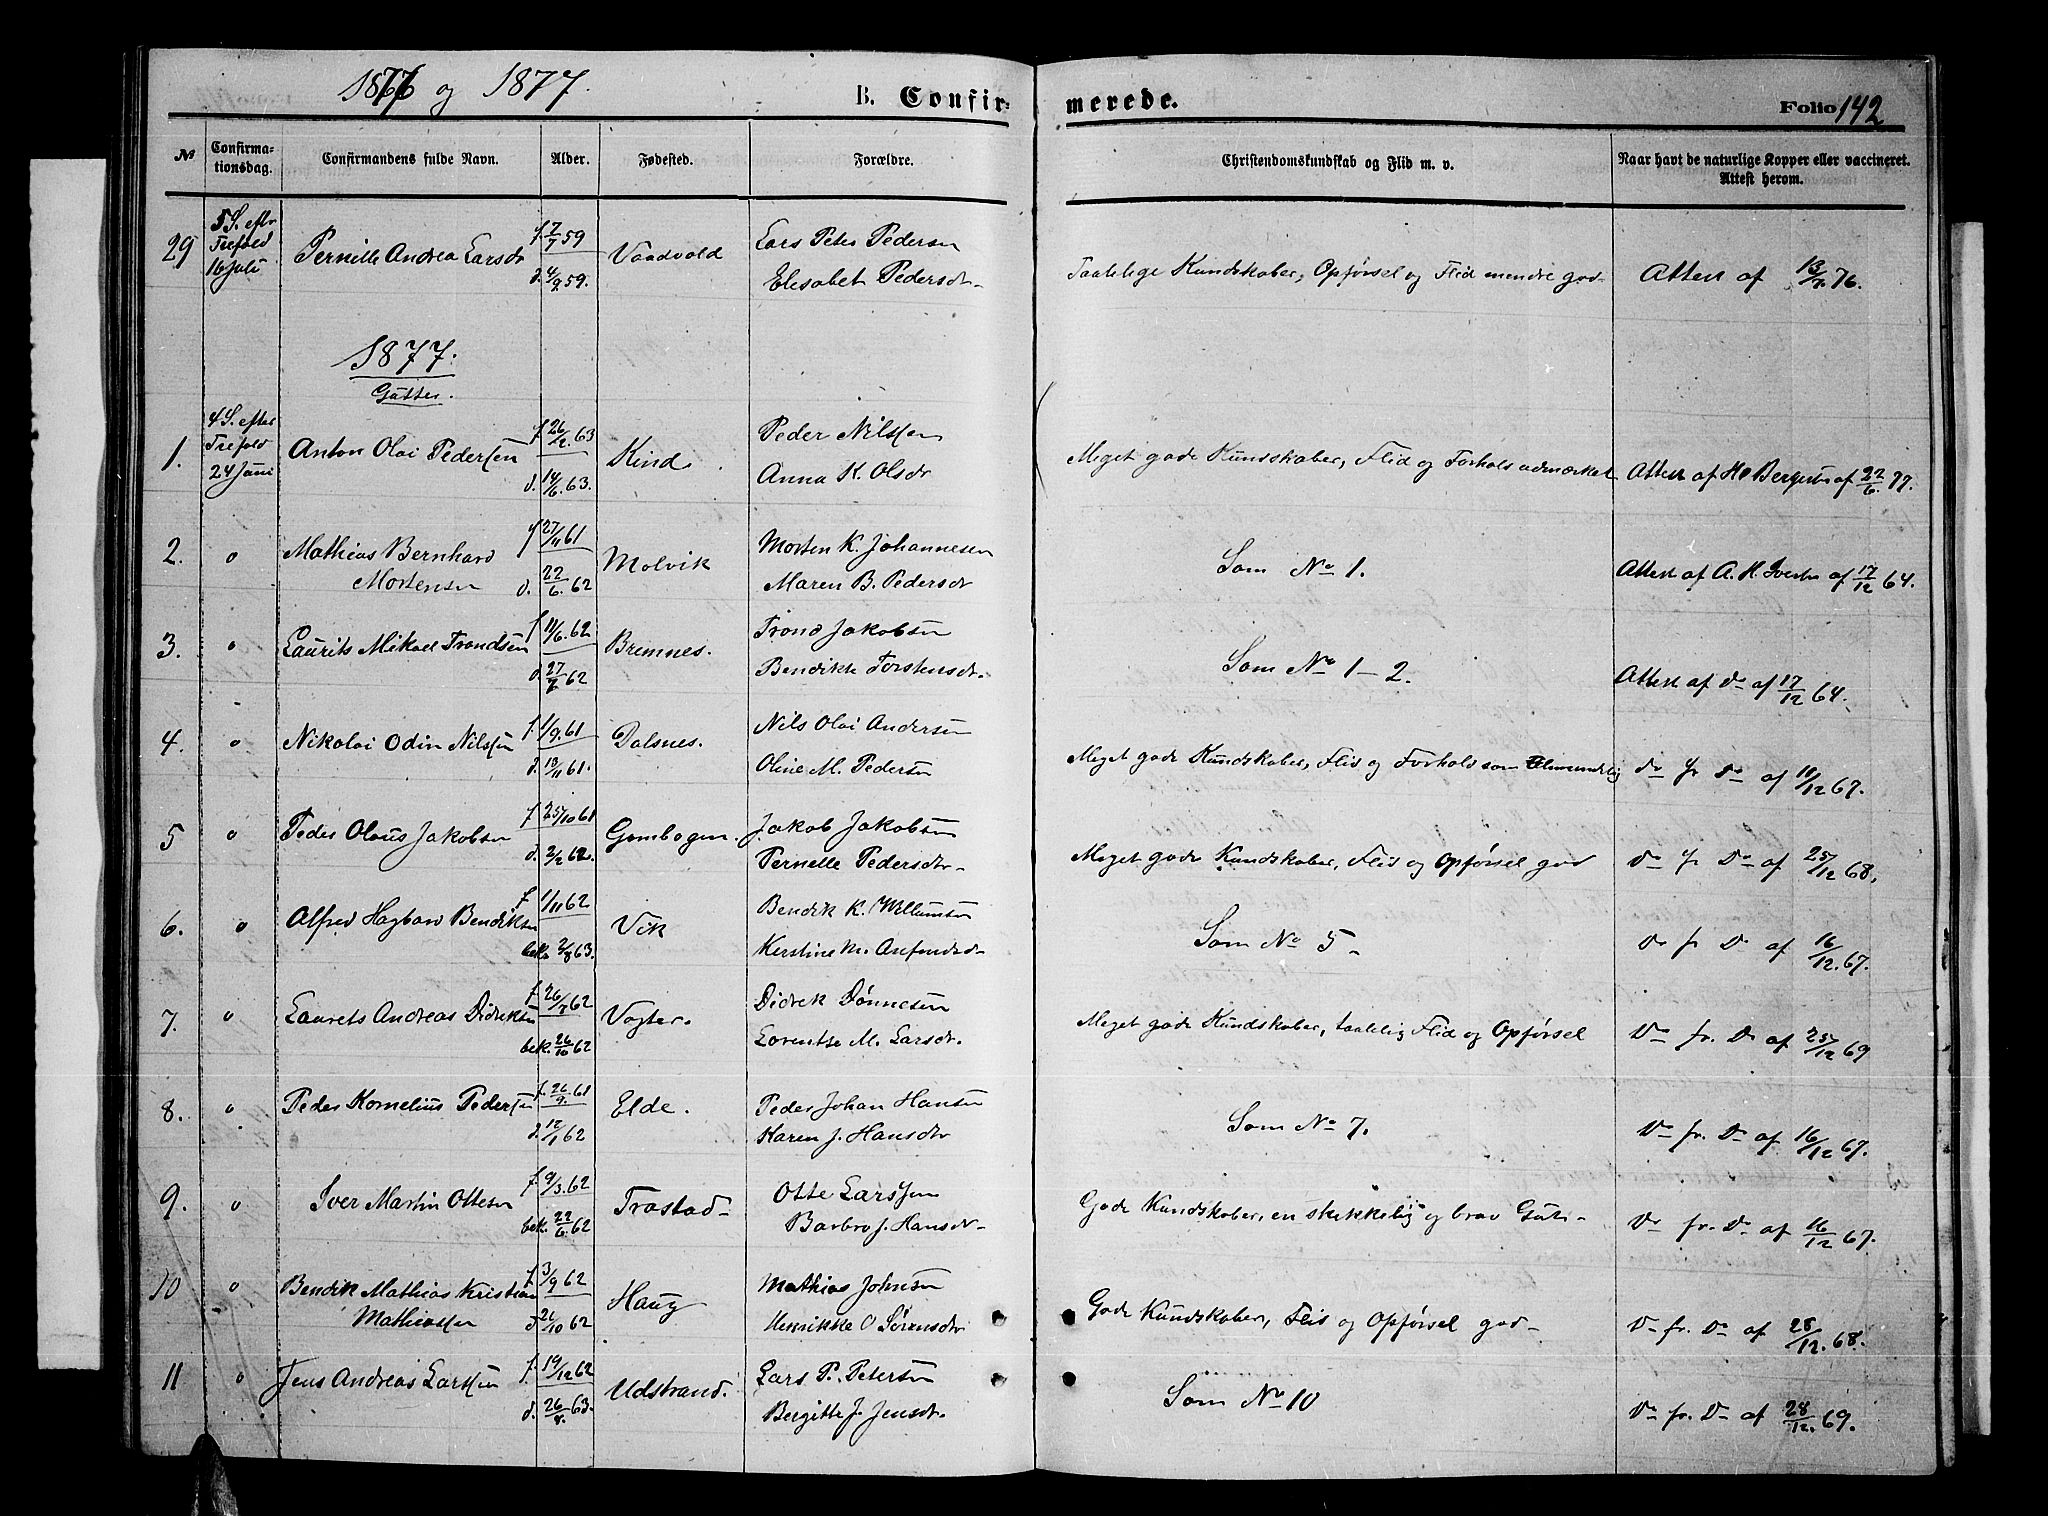 1876 og 1877.
B. Confirmerede.
Folio 142
№
Confirmationsdag.
Confirmandens fulde Navn.
Alder.
Fødested.
Forældre.
Christendomskundskab og Flid m. v.
Naar havt de naturlige Kopper eller vaccineret. Attest herom.
29 5 S. eftr Trefold 16 Juli Pernille Andrea Larsdr f. 7/7 59 d. 4/9 59. Vaadvold Lars Peter Pedersen Elisabet Pedersdr Taalelige Kundskaber, Opførsel og Flid mindre god Attest af 13/7 76.
1877.
Gutter.
1. 4 S. efter Trefold 24 Juni Anton Olai Pederssen f. 26/2 63 d. 14/6 63. Kind Peder Nilssen Anna K. Olsdr Meget gode Kundskaber, Flid og Forhold udmærket Attest af 22/6 77.
2. " Mathias Bernhard Mortensen f 27/11 61 d. 22/6 62 Molvik Morten K. Johannesen Maren B. Pedersdr Som No 1. Attest af A. H. 17/12 64.
3. " Laurits Mikael Trondsen f 11/6 62 d. 27/7 62 Bremnes. Trond Jakobsen Bendikte Torstensdr. Som No 1-2. Attest af Do af 17/12 64.
4. " Nikolai Odin Nilssen f. 1/9 61 d. 13/11 61. Dalsnes. Nils Olai Andersen Oline M. Pedersen Meget gode Kundskaber, Flid og Forhold som Do fr Do af 11/12 67.
5 " Peder Olaus Jakobsen f. 25/10 61 d. 2/2 62. Gombogen. Jakob Jakobsen Pernelle Pedersdr Meget gode Kundskaber, Flid og Opførsel god Do fr Do af 25/12 68.
6. " Alfred Hagbard Bendiksen f 1/11 62 bek. 2/8 63. Vik Bendik K. Willumsen Kirstine M. Anfindsdr Som No 5 Do fr Do af 16/12 67.
7. " Laurets Andreas Didriksen f. 26/7 62 bek. 26/10 62 Vogter. Didrek Dønnesen Lorentse M. Larsdr. Meget gode Kundskaber, taalelig Flid og Opførsel Do fr. Do af 25/12 69
8. " Peder Kornelius Pederssen f. 26/9 61 d. 12/1 62 Elde. Peder Johan Hansen Karen J. Hansdr Som No 7. Do fr. Do af 16/12 67.
9. " Iver Martin Ottesen f. 9/3 62 bek. 22/6 62 Trastad Otte Larssen Barbro J. Hansdr Gode Kundskaber, en skikkelig og brav Gut Do fr. Do af 16/12 67.
10 " Bendik Mathias Kristian Mathiassen f. 3/9 62 d 26/10 62 Haug Mathias Johnsen Henrikke O Sørensdr Gode Kundskaber, Flid og Opførsel god Do fr. Do af 28/12 68.
11 " Jens Andreas Larssen f. 19/12 62 d. 26/8 63. Udstrand. Lars P. Petersen Bergitte J. Jensdr. Som No 10 Do fr. Do af 28/12 69.